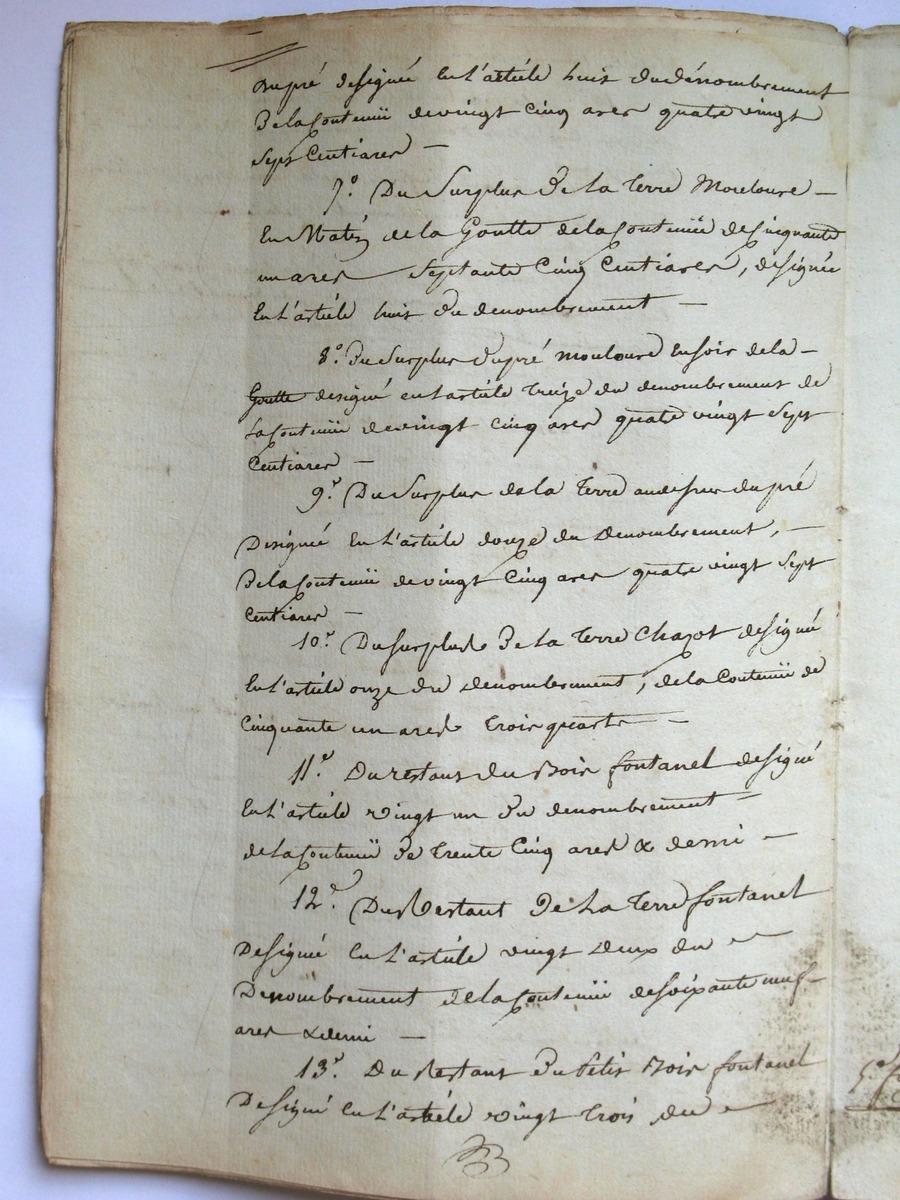 Dupré designée en l'article huit du dénombrement
De la Contenüe de vingt cinq ares quatre vingt
sept Centiares —
7.° Du Surplus De la Terre Mouloure —
En Matin de la Goutte de la Contenüe de Cinquante
un ares Septante Cinq Centiares, designée
En l'article huit du denombrement —
8.° Du Surplus Du pré mouloure En soir de la —
Goutte designé en l'article treize du denombrement de
la Contenüe de vingt cinq ares quatre vingt Sept
Centiares —
9.° Du Surplus de la Terre au dessus du pré
Designée En L'article douze du Denombrement, —
De la Contenüe de vingt Cinq ares quatre vingt Sept
Centiares —
10.° Du Surplus De la Terre Chazot designé
En l'article onze du denombrement, de la Contenüe de
Cinquante un ares Trois quarts —
11.° Du restant du Bois fontanel designé
En l'article vingt un Du denombrement =
de la Contenüe De trente Cinq ares & demi —
12.° Du Restant De La Terre fontanel
Designé En L'article vingt Deux du —
Denombrement de la Contenüe de soixante neuf
ares & demi —
13.° Du Restant Du Petit Bois fontanel
Designé En L'article vingt Trois du —